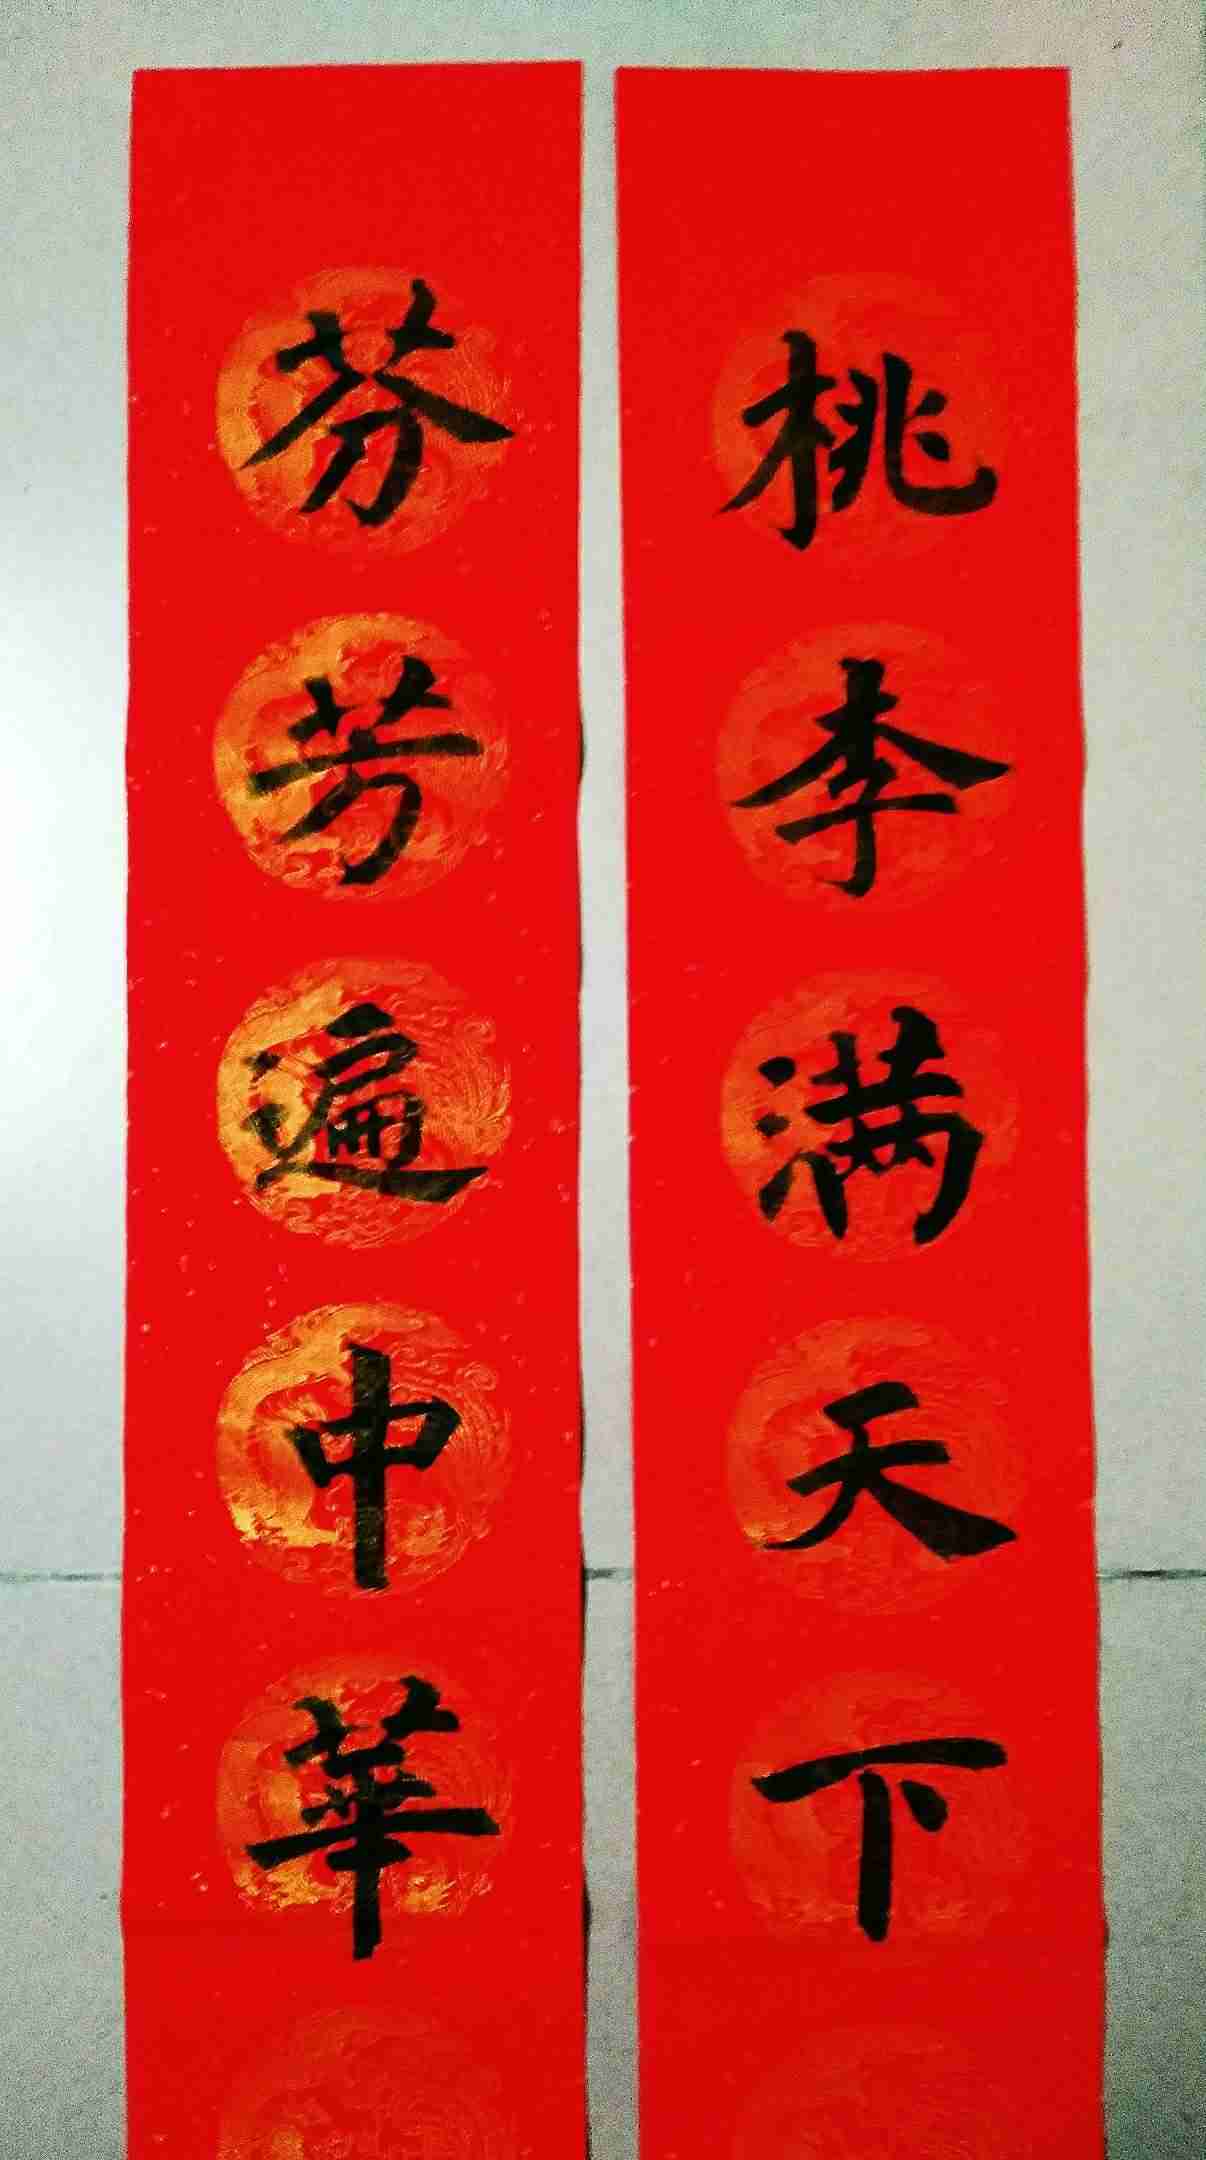 桃李满天下
芬芳遍中華